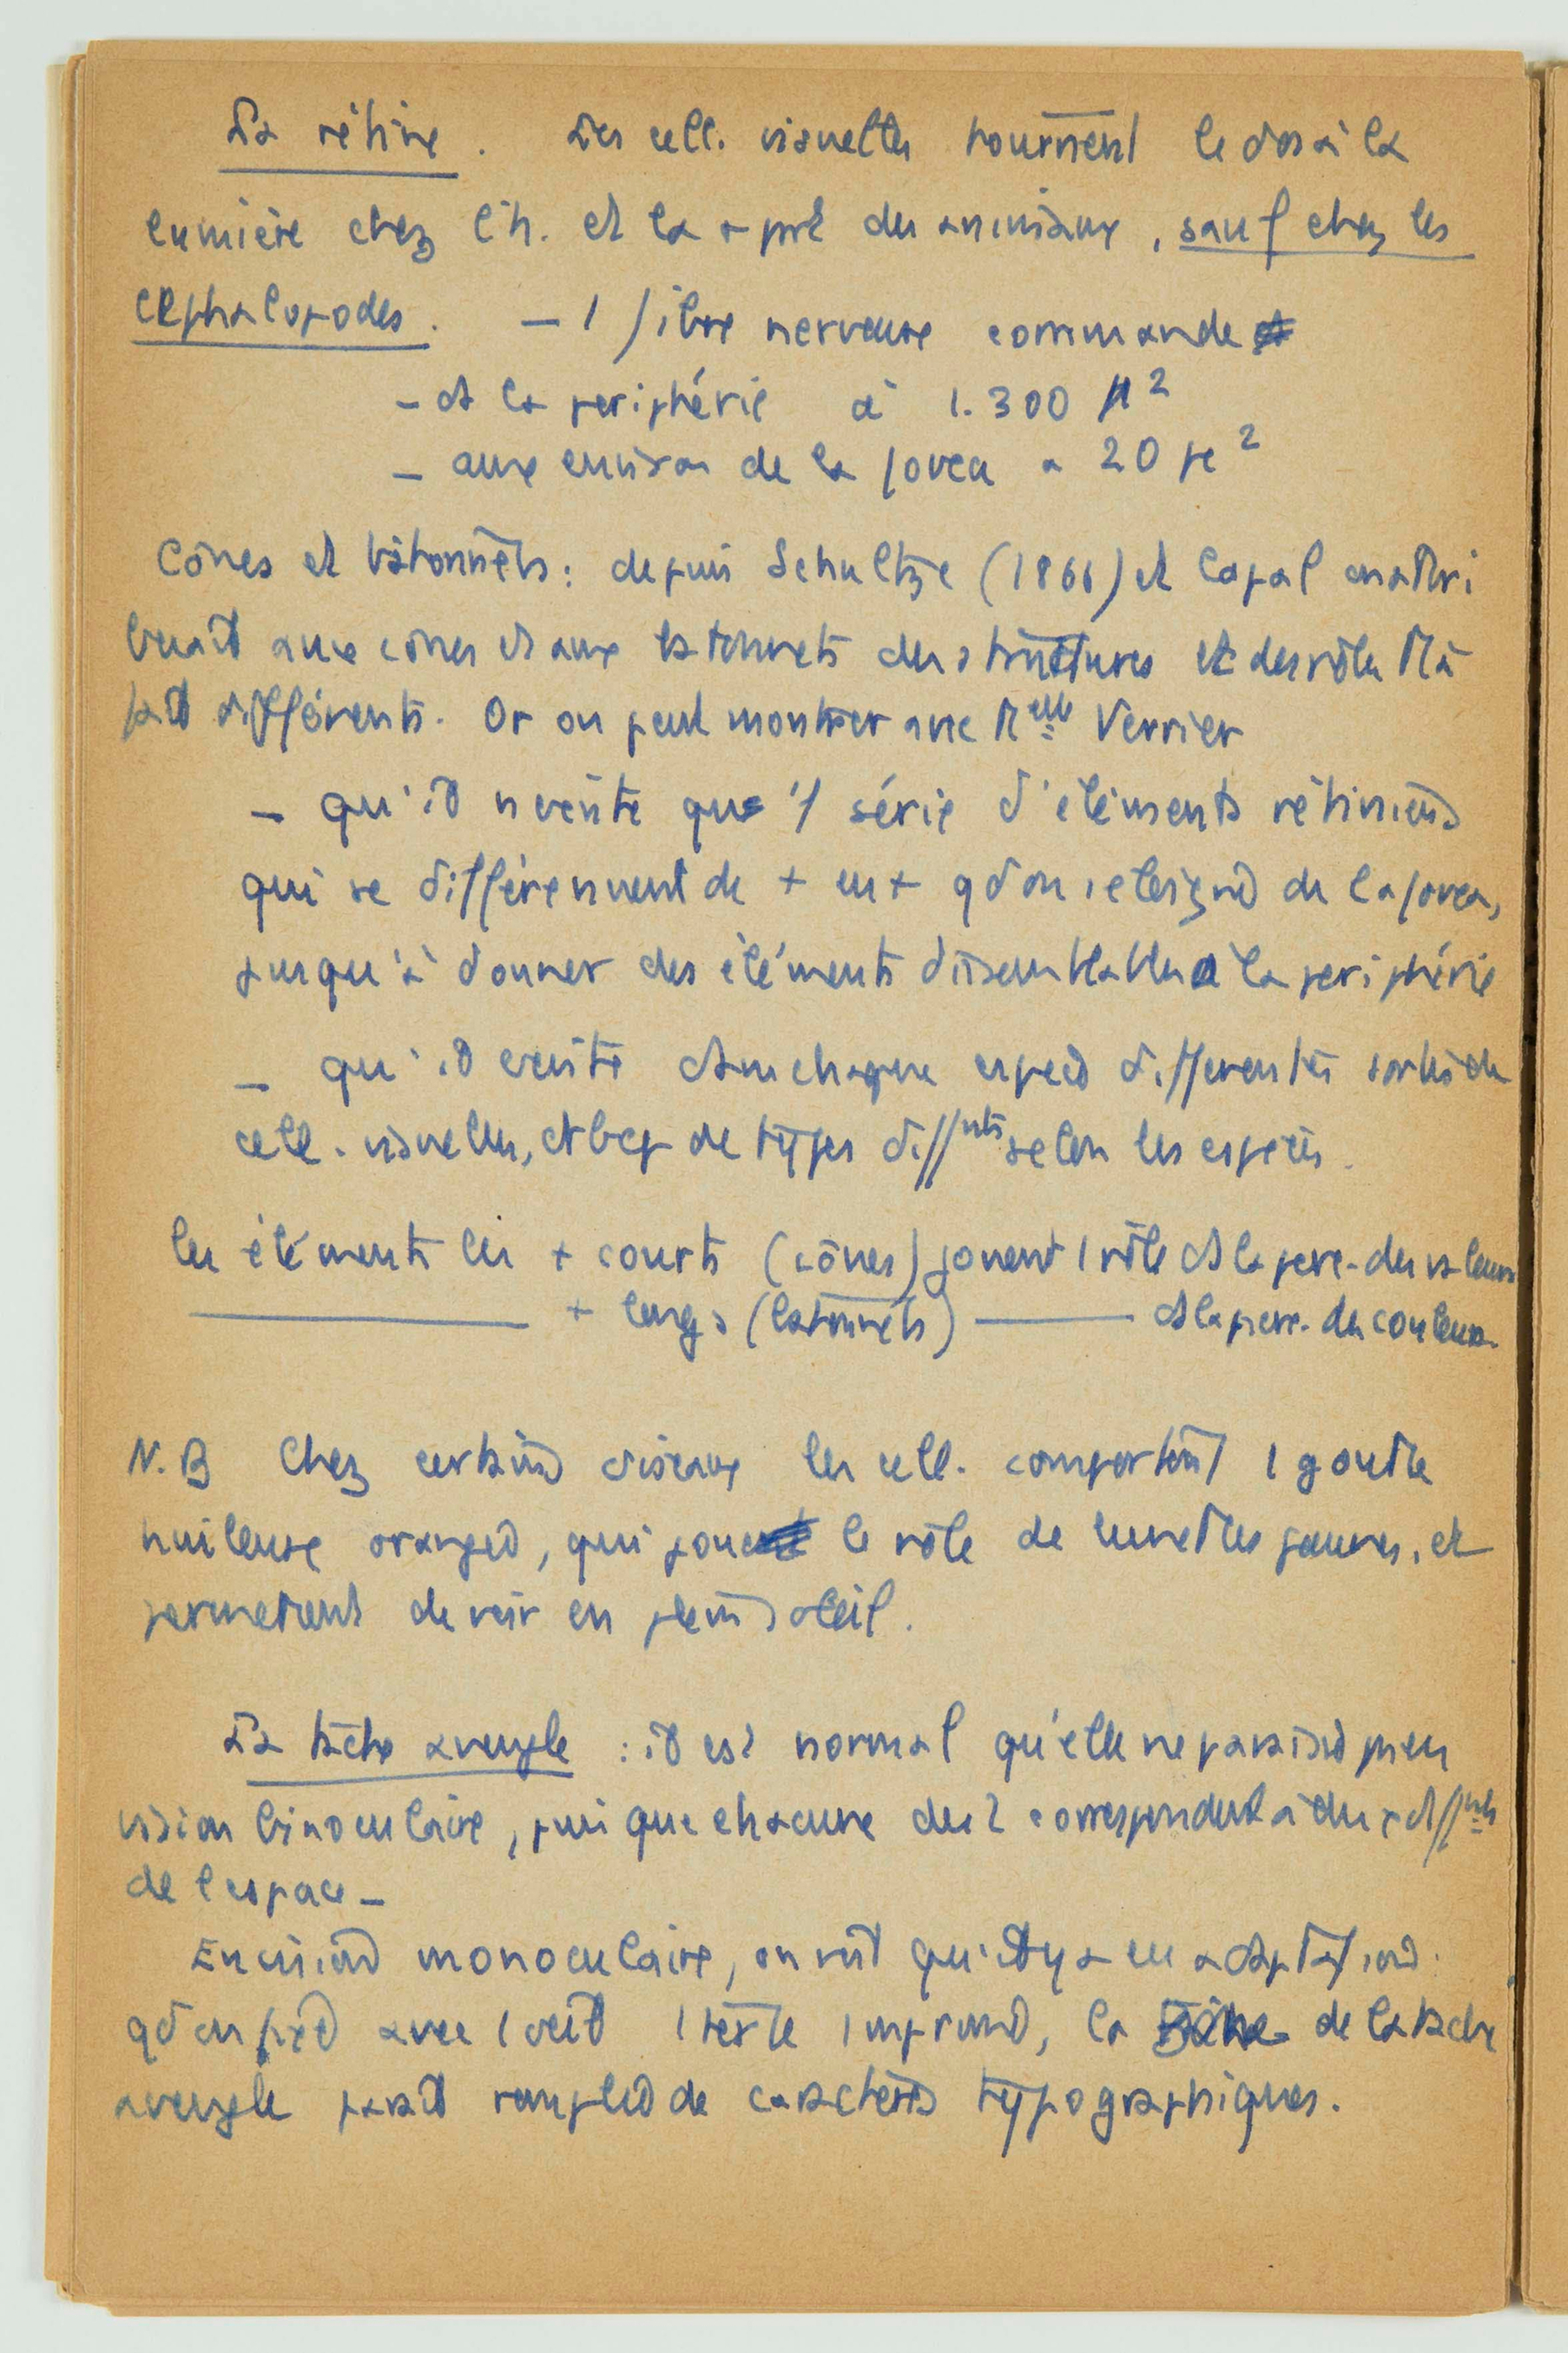 La rétine. Les cell. visuelles tournent le dos à la
lumière chez l'h. et la + part des animaux, sauf chez les
céphalopodes. – 1 fibre nerveuse commande
– ds la periphérie à 1.300 μ²
– aux environs de la fovea à 20 μ²
Cônes et bâtonnets : depuis Schultze (1866) et Cajal on attri
buait aux cônes et aux batonnets des structures et des rôles tt à
fait différents. Or on peut montrer avec Melle Verrier
– qu'il n'existe que 1 série d'éléments rétiniens
qui se différencient de + en + qd on s'éloigne de la fovea,
jusqu'à donner des éléments dissemblables à la periphérie
– qu'il existe ds chaque espèce différentes sortes de
cell. visuelles, et bcp de types diffnts selon les espèces.
les éléments les + courts (cônes) jouent 1 rôle ds la perc. des valeurs
——— + longs (batonnets) ——— ds la perc. des couleurs.
N.B Chez certains oiseaux les cell. comportent 1 goutte
huileuse orangée, qui joue le rôle de lunettes jaunes, et
permettent de voir en plein soleil.
La tache aveugle : il est normal qu'elle ne paraisse pas en
vision binoculaire, puisque chacune des 2 correspondent à des diffnts
de l'espace –
En vision monoculaire, on voit qu'il y a eu adaptation.
qd on fixe avec 1 oeil 1 texte imprimé, la de la tache
aveugle parait remplie de caractères typographiques.